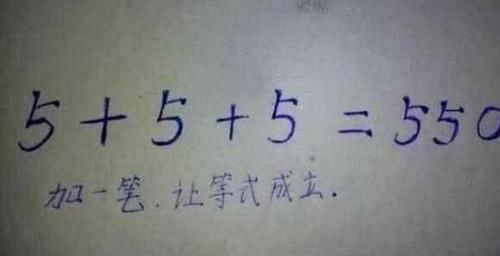 5+5+5=550
加一笔.让等式成立.